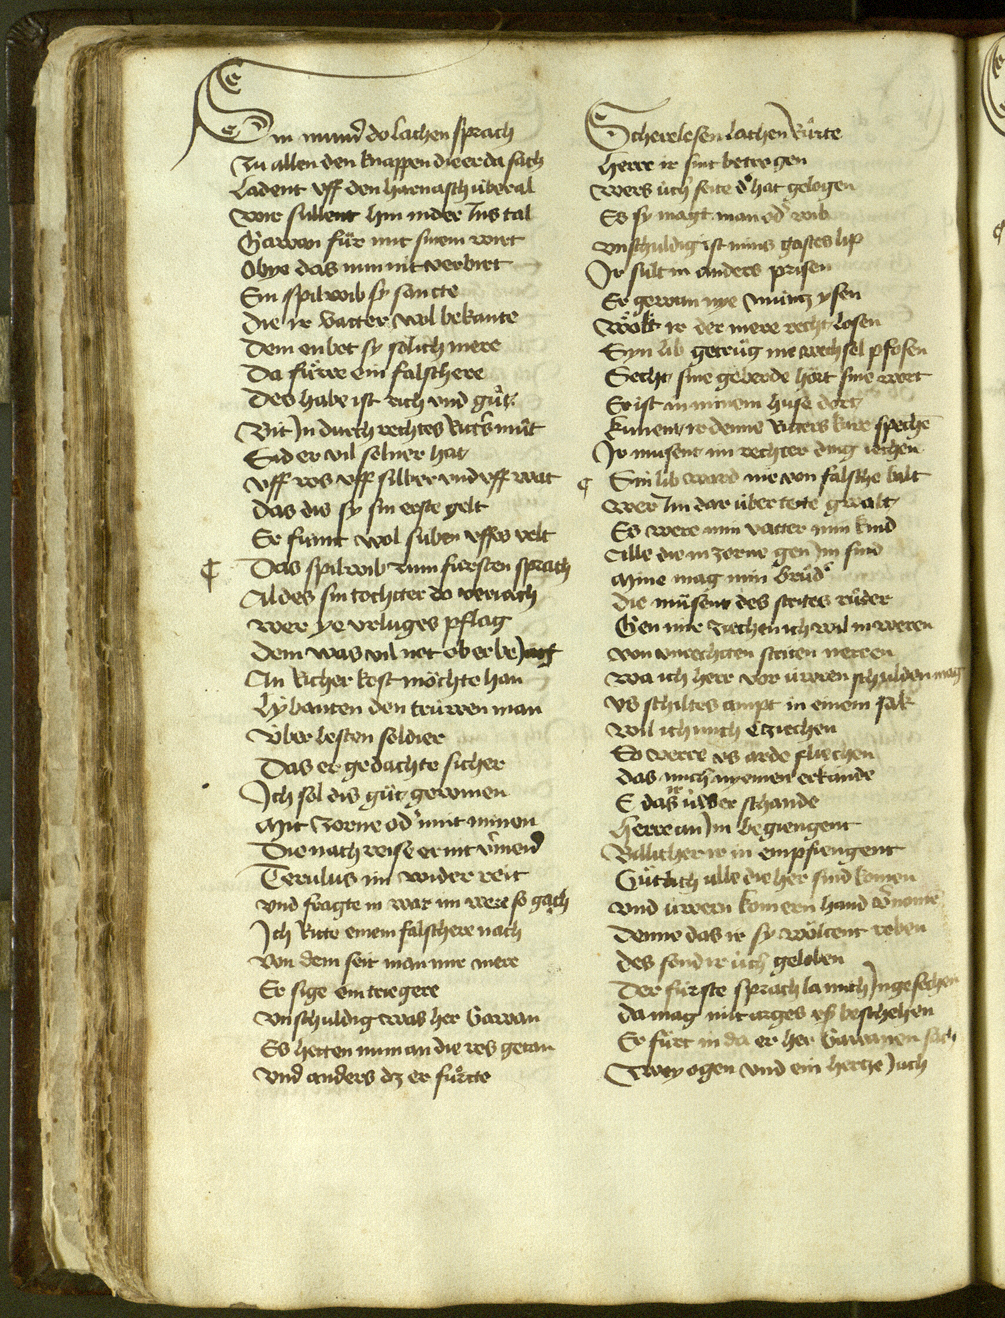 Sin mund do lachen sprach
Zu allen den knappen die er da sach
Ladent vff den harnasch v̈beral
Wir sullent hin nider Jns tal
Gawan für mit sinem wirt
Obye das nun nit verbirt
Ein spilwib sy sancte
Die ir vatter wol bekante
Dem enbot sy sölich mere
Da fu̍re ein falschere
Des habe ist rich vnd gu̍t
Bit Jn durch rechtes Ritters mu̍t
Sid er vil solner hat
Vff ros vff silber vnd vff wat
Das dis sy sin erste gelt
Er frumt wol suben vffes velt
¶ Das spilwib zum fürsten sprach
Aldes sin tochtter do veriach
Wer ye vrluges pflag
Dem was vil not ob er bejag
An Richer kost möchte han
Lybauten den trüwen man
V̈ber besten soldier
Das er gedachte sicher
Ich sol dis gu̍t gewinnen
Mit zorne od' mit minen
Die nach reise er nit v'meid
Terulus im wider reit
Vnd fragte in war im were so gach
Ich Ritte einem falschere nach
Von dem seit man mir mere
Er sige ein triegere
Vnschuldig was her Gawan
Es hetten nun an die ros getan
Vnd anders dz er fürtte
Scherelesen lachen Ru̍rte
Herre ir sint betrogen
Wers u̍ch seite d' hat gelogen
Es sy magt man od' wib
Vnschuldig ist mins gastes lip
Ir sült in anders prisen
Er gewan nye mu̍ntz ysen
Wölt ir der mere recht losen
Syn lib getru̍g nie wechsel pfosen
Secht sine geberde hört sine wort
Er ist in minem huse dort
Kunent ir denne Ritters kure spechen
Ir mu̍sent im rechter ding iechen
¶ Sin lib ward nie von falsche balt
Wer Jm dar über tete gwalt
Es were min vatter min kind
Alle die in zorne gen im sind
Mine mag min bru̍d'
Die mu̍sent des strites ru̍der
Gen mir ziechen ich wil in weren
Von vnrechtten striten neren
Wa ich herr vor u̍wren schulden mag
Vs schiltes ampt in einem sak
Wil ich mich e ziechen
So verre vs arde fliechen
Das mich nyemen erkande
E das ir u̍wer schande
Herre an Jm begiengent
Billicher ir in empfiengent
Gu̍tlich alle die her sind komen
Vnd u̍wern komern hand v'nomen
Denne das ir sy wöltent roben
Des sönd ir u̍ch geloben
Der fürste sprach la mich Jn gesechen
Da mag nit arges vs beschehen
Er fu̍rt in da er her Gawanen sach
Twey ogen vnd ein hertze Jach